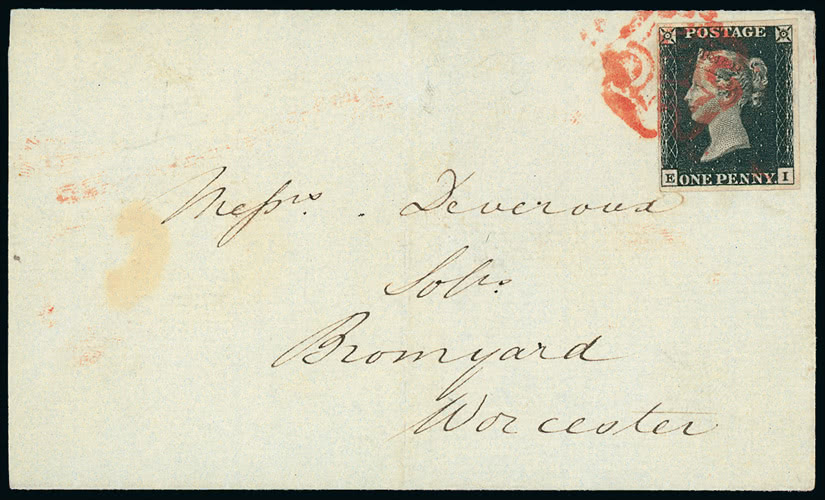 POSTAGE
E ONE PENNY I
Messrs. Deveroux
Solrs.
Bromyard
Worcester